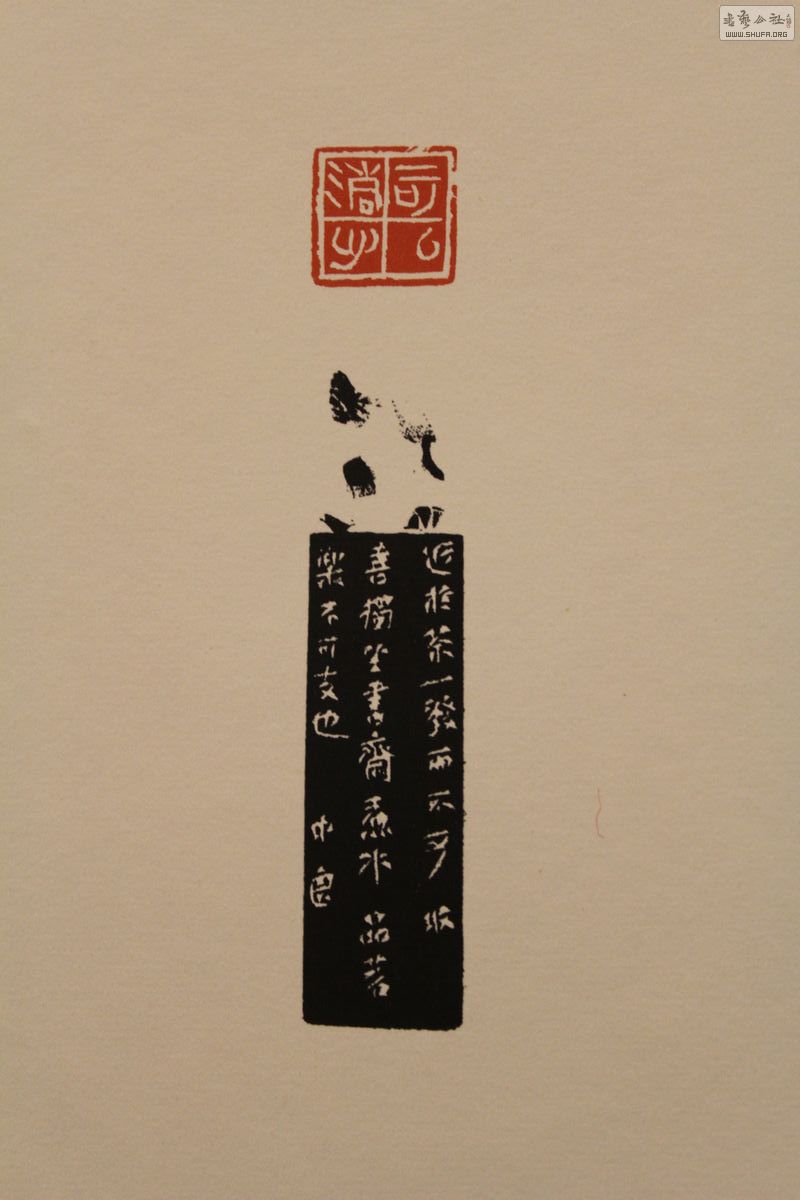 可以心
近於茶一發而不可收
喜獨坐書齋煮水品茗
樂不可支也
書藝公社
WWW.SHUFA.ORG